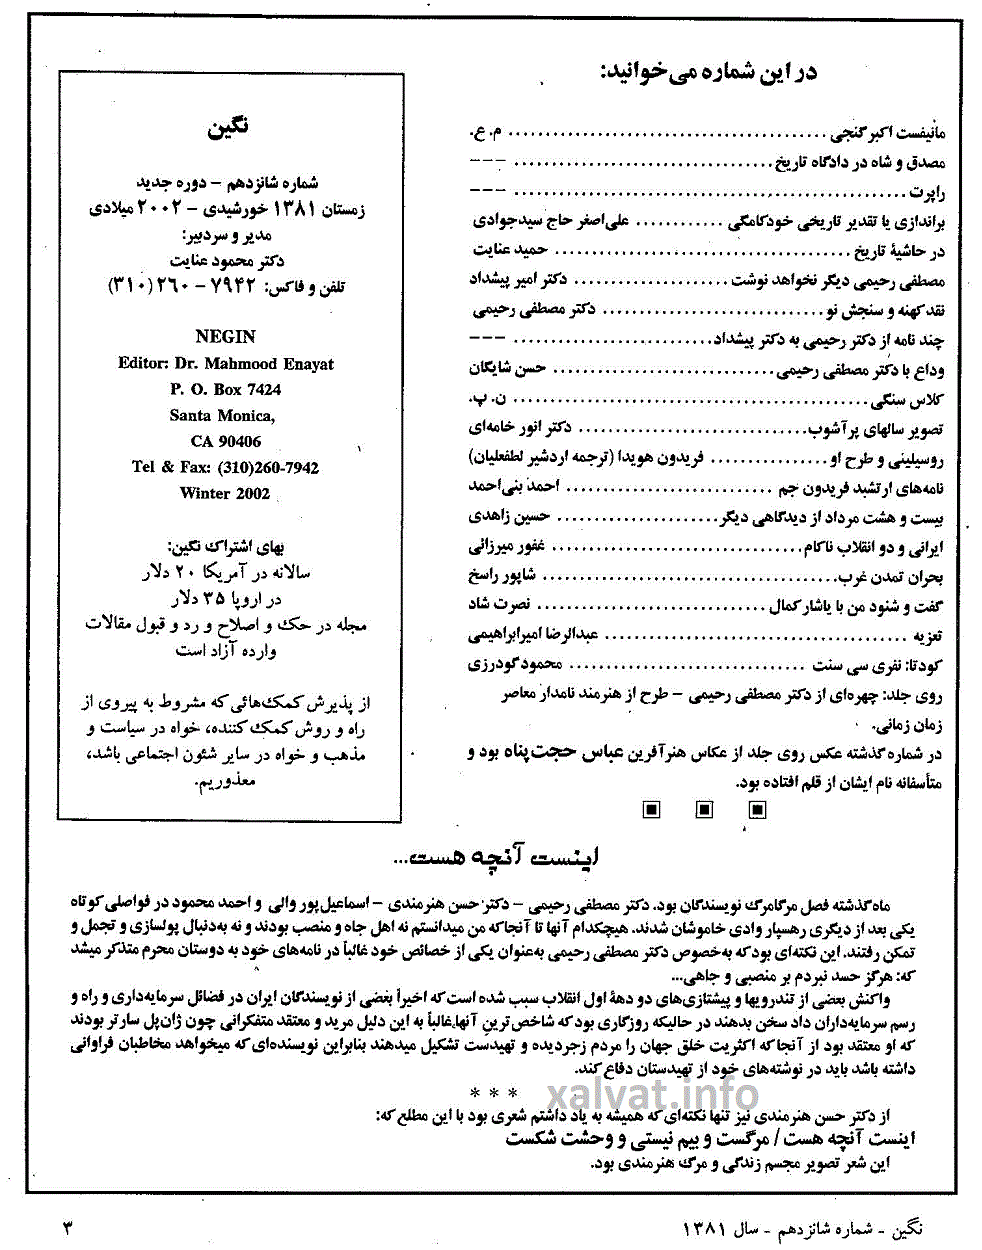 در این شماره می‌خوانید:
مانیفست اکبر گنجی .......................................... م. ع.
مصدق و شاه در دادگاه تاریخ ................................... ---
راپرت .......................................... ---
براندازی یا تقدیر تاریخی خودکامگی ............ علی‌اصغر حاج سیدجوادی
در حاشیهٔ تاریخ ........................................ حمید عنایت
مصطفی رحیمی دیگر نخواهد نوشت ..................... دکتر امیر پیشداد
نقد کهنه و سنجش نو .............................. دکتر مصطفی رحیمی
چند نامه از دکتر رحیمی به دکتر پیشداد ........................... ---
وداع با دکتر مصطفی رحیمی .............................. حسن شایگان
کلاس سنگی ................................................ ن. پ.
تصویر سالهای پرآشوب ............................... دکتر انور خامه‌ای
روسیلینی و طرح او ................ فریدون هویدا (ترجمه اردشیر لطفعلیان)
نامه‌های ارتشبد فریدون جم ............................ احمد بنی‌احمد
بیست و هشت مرداد از دیدگاهی دیگر ...................... حسین زاهدی
ایرانی و دو انقلاب ناکام ................................ غفور میرزائی
بحران تمدن غرب ........................................ شاپور راسخ
گفت و شنود من با یاشار کمال ............................... نصرت شاد
تعزیه ........................................ عبدالرضا امیرابراهیمی
کودتا: نفری سی سنت ................................ محمود گودرزی
روی جلد: چهره‌ای از دکتر مصطفی رحیمی – طرح از هنرمند نامدار معاصر
زمان زمانی.
در شماره گذشته عکس روی جلد از عکاس هنرآفرین عباس حجت‌پناه بود و
متأسفانه نام ایشان از قلم افتاده بود.
نگین
شماره شانزدهم – دوره جدید
زمستان ۱۳۸۱ خورشیدی – ۲۰۰۲ میلادی
مدیر و سردبیر:
دکتر محمود عنایت
تلفن و فاکس: ۷۹۴۲ – ۲۶۰ (۳۱۰)
NEGIN
Editor: Dr. Mahmood Enayat
P. O. Box 7424
Santa Monica,
CA 90406
Tel & Fax: (310)260-7942
Winter 2002
بهای اشتراک نگین:
سالانه در آمریکا ۲۰ دلار
در اروپا ۳۵ دلار
مجله در حک و اصلاح و رد و قبول مقالات
وارده آزاد است
از پذیرش کمک‌هائی که مشروط به پیروی از
راه و روش کمک کننده، خواه در سیاست و
مذهب و خواه در سایر شئون اجتماعی باشد،
معذوریم.
اینست آنچه هست...
ماه گذشته فصل مرگامرگ نویسندگان بود. دکتر مصطفی رحیمی – دکتر حسن هنرمندی – اسماعیل پور والی و احمد محمود در فواصلی کوتاه
یکی بعد از دیگری رهسپار وادی خاموشان شدند. هیچکدام آنها تا آنجا که من میدانستم نه اهل جاه و منصب بودند و نه به‌دنبال پولسازی و تجمل و
تمکن رفتند. این نکته‌ای بود که به‌خصوص دکتر مصطفی رحیمی به‌عنوان یکی از خصائص خود غالباً در نامه‌های خود به دوستان محرم متذکر میشد
که: هرگز حسد نبردم بر منصبی و جاهی...
واکنش بعضی از تندرویها و پیشتازی‌های دو دههٔ اول انقلاب سبب شده است که اخیراً بعضی از نویسندگان ایران در فضائل سرمایه‌داری و راه و
رسم سرمایه‌داران داد سخن بدهند در حالیکه روزگاری بود که شاخص‌ترین آنها غالباً به این دلیل مرید و معتقد متفکرانی چون ژان‌پل سارتر بودند
که او معتقد بود از آنجا که اکثریت خلق جهان را مردم زجردیده و تهیدست تشکیل میدهند بنابراین نویسنده‌ای که میخواهد مخاطبان فراوانی
داشته باشد باید در نوشته‌های خود از تهیدستان دفاع کند.
* * *
xalvat.info
از دکتر حسن هنرمندی نیز تنها نکته‌ای که همیشه به یاد داشتم شعری بود با این مطلع که:
اینست آنچه هست / مرگست و بیم نیستی و وحشت شکست
این شعر تصویر مجسم زندگی و مرگ هنرمندی بود.
نگین - شماره شانزدهم - سال ۱۳۸۱
۳